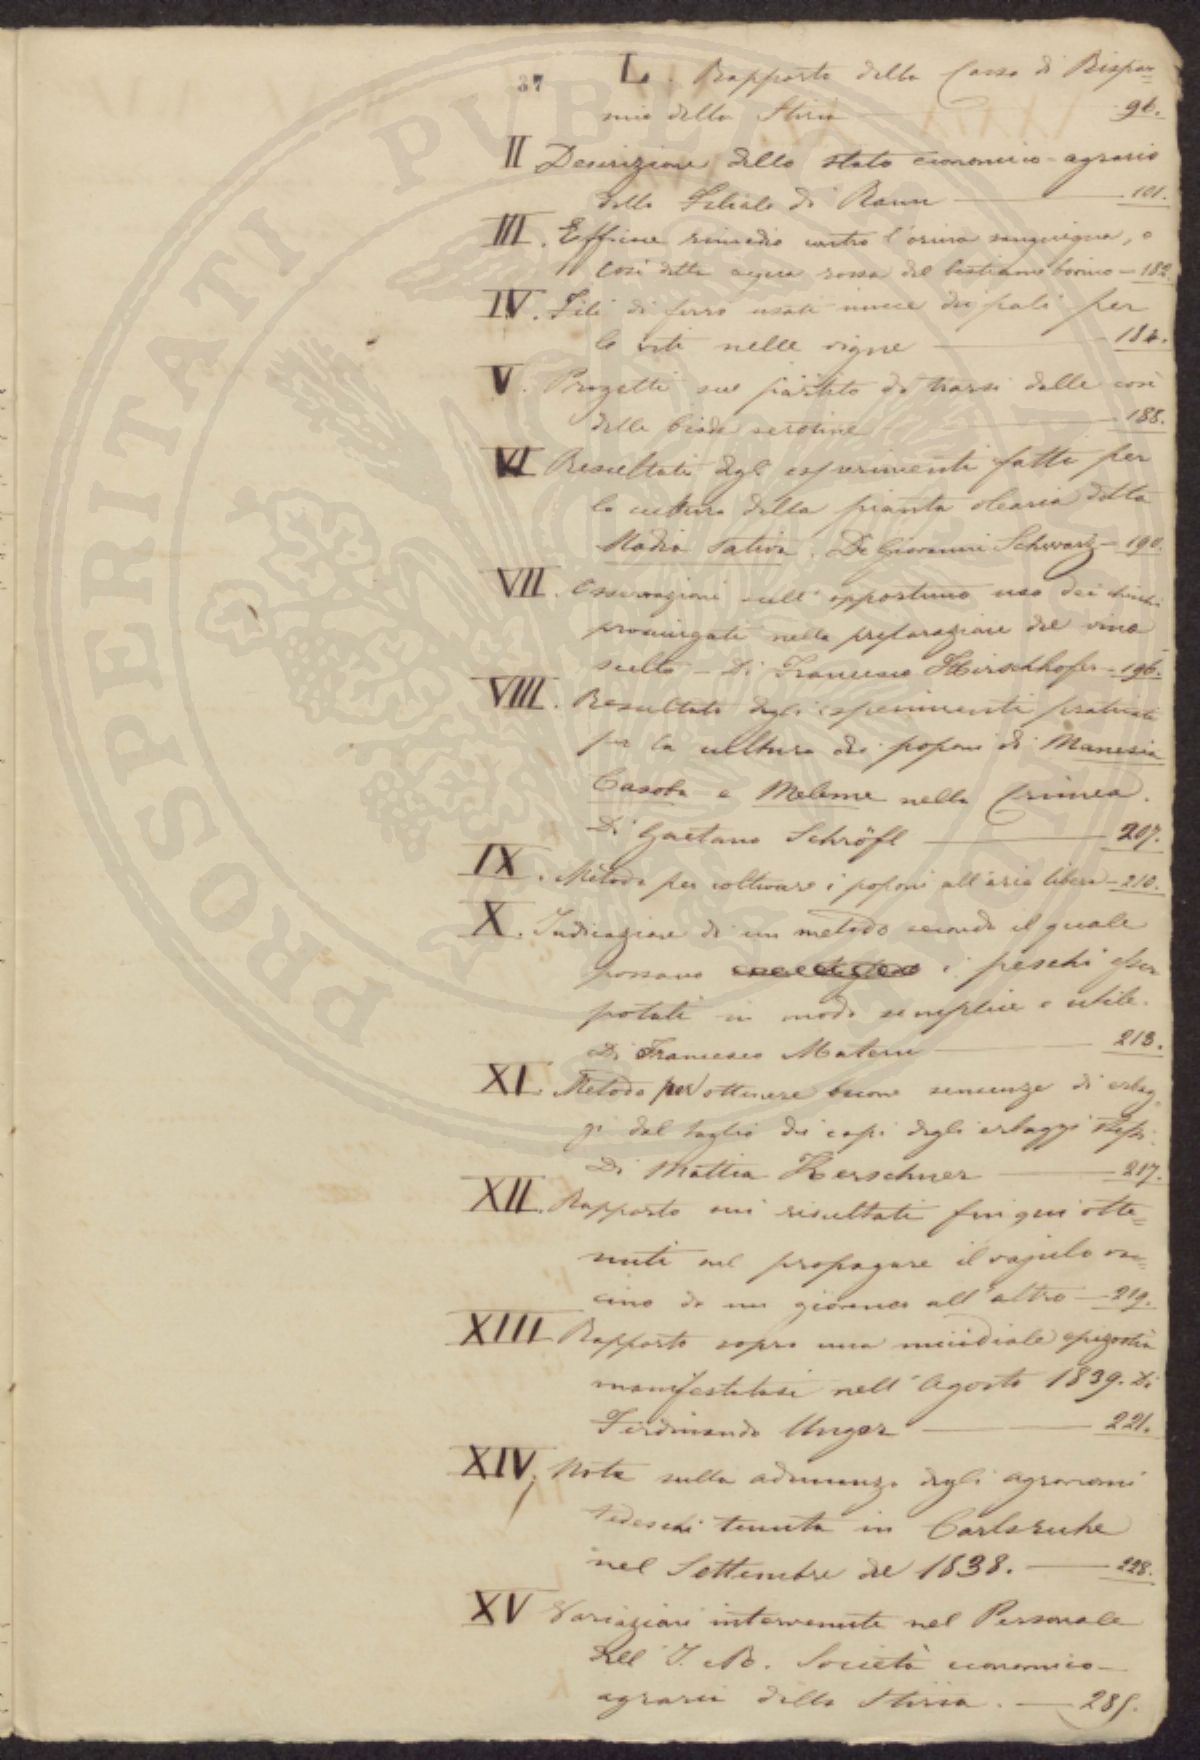 37
I. Rapporto della Cassa di Rispar=
mio della Stiria — 96.
II Descrizione dello stato economico-agrario
della Filiale di Rann — 101.
III. Efficace rimedio contro l'orina sanguigna, o
così detta acqua rossa del bestiame bovino — 182.
IV. Fili di ferro usati invece dei pali per
le viti nelle vigne — 184.
V. Progetti sul partito da trarsi dalle così
dette biade serotine — 188.
VI Resultati degli esperimenti fatti per
la cultura della pianta olearia detta
Madia Sativa. Di Giovanni Schwarz — 190.
VII. Osservazioni sull'opportuno uso dei
prosciugati nella preparazione del vino
scelto — Di Francesco Hirschhofer — 196.
VIII. Resultato degli esperimenti praticati
per la cultura dei poponi di Manesia
Casoba e Melome nella Crimea.
Di Gaetano Schröfl — 207.
IX. Metodo per coltivare i poponi all'aria libera — 210.
X. Indicazione di un metodo secondo il quale
possano i peschi esser
potati in modo semplice e utile.
Di Francesco Matern — 213.
XI. Metodo per ottenere buone semenze di erbag=
gi dal taglio dei capi degli erbaggi stessi.
Di Mattia Kerschner — 217.
XII. Rapporto sui risultati fin qui otte=
nuti nel propagare il vajolo vac=
cino da un giovenco all'altro — 219.
XIII Rapporto sopra una micidiale epizootia
manifestatasi nell'Agosto 1839. Di
Ferdinando Unger — 221.
XIV. Nota sulla adunanza degli agronomi
tedeschi tenuta in Carlsruhe
nel Settembre del 1838. — 228.
XV Variazioni intervenute nel Personale
dell'I. R. Società economico-
agraria della Stiria. — 285.
PROSPERITATI PUBLICAE